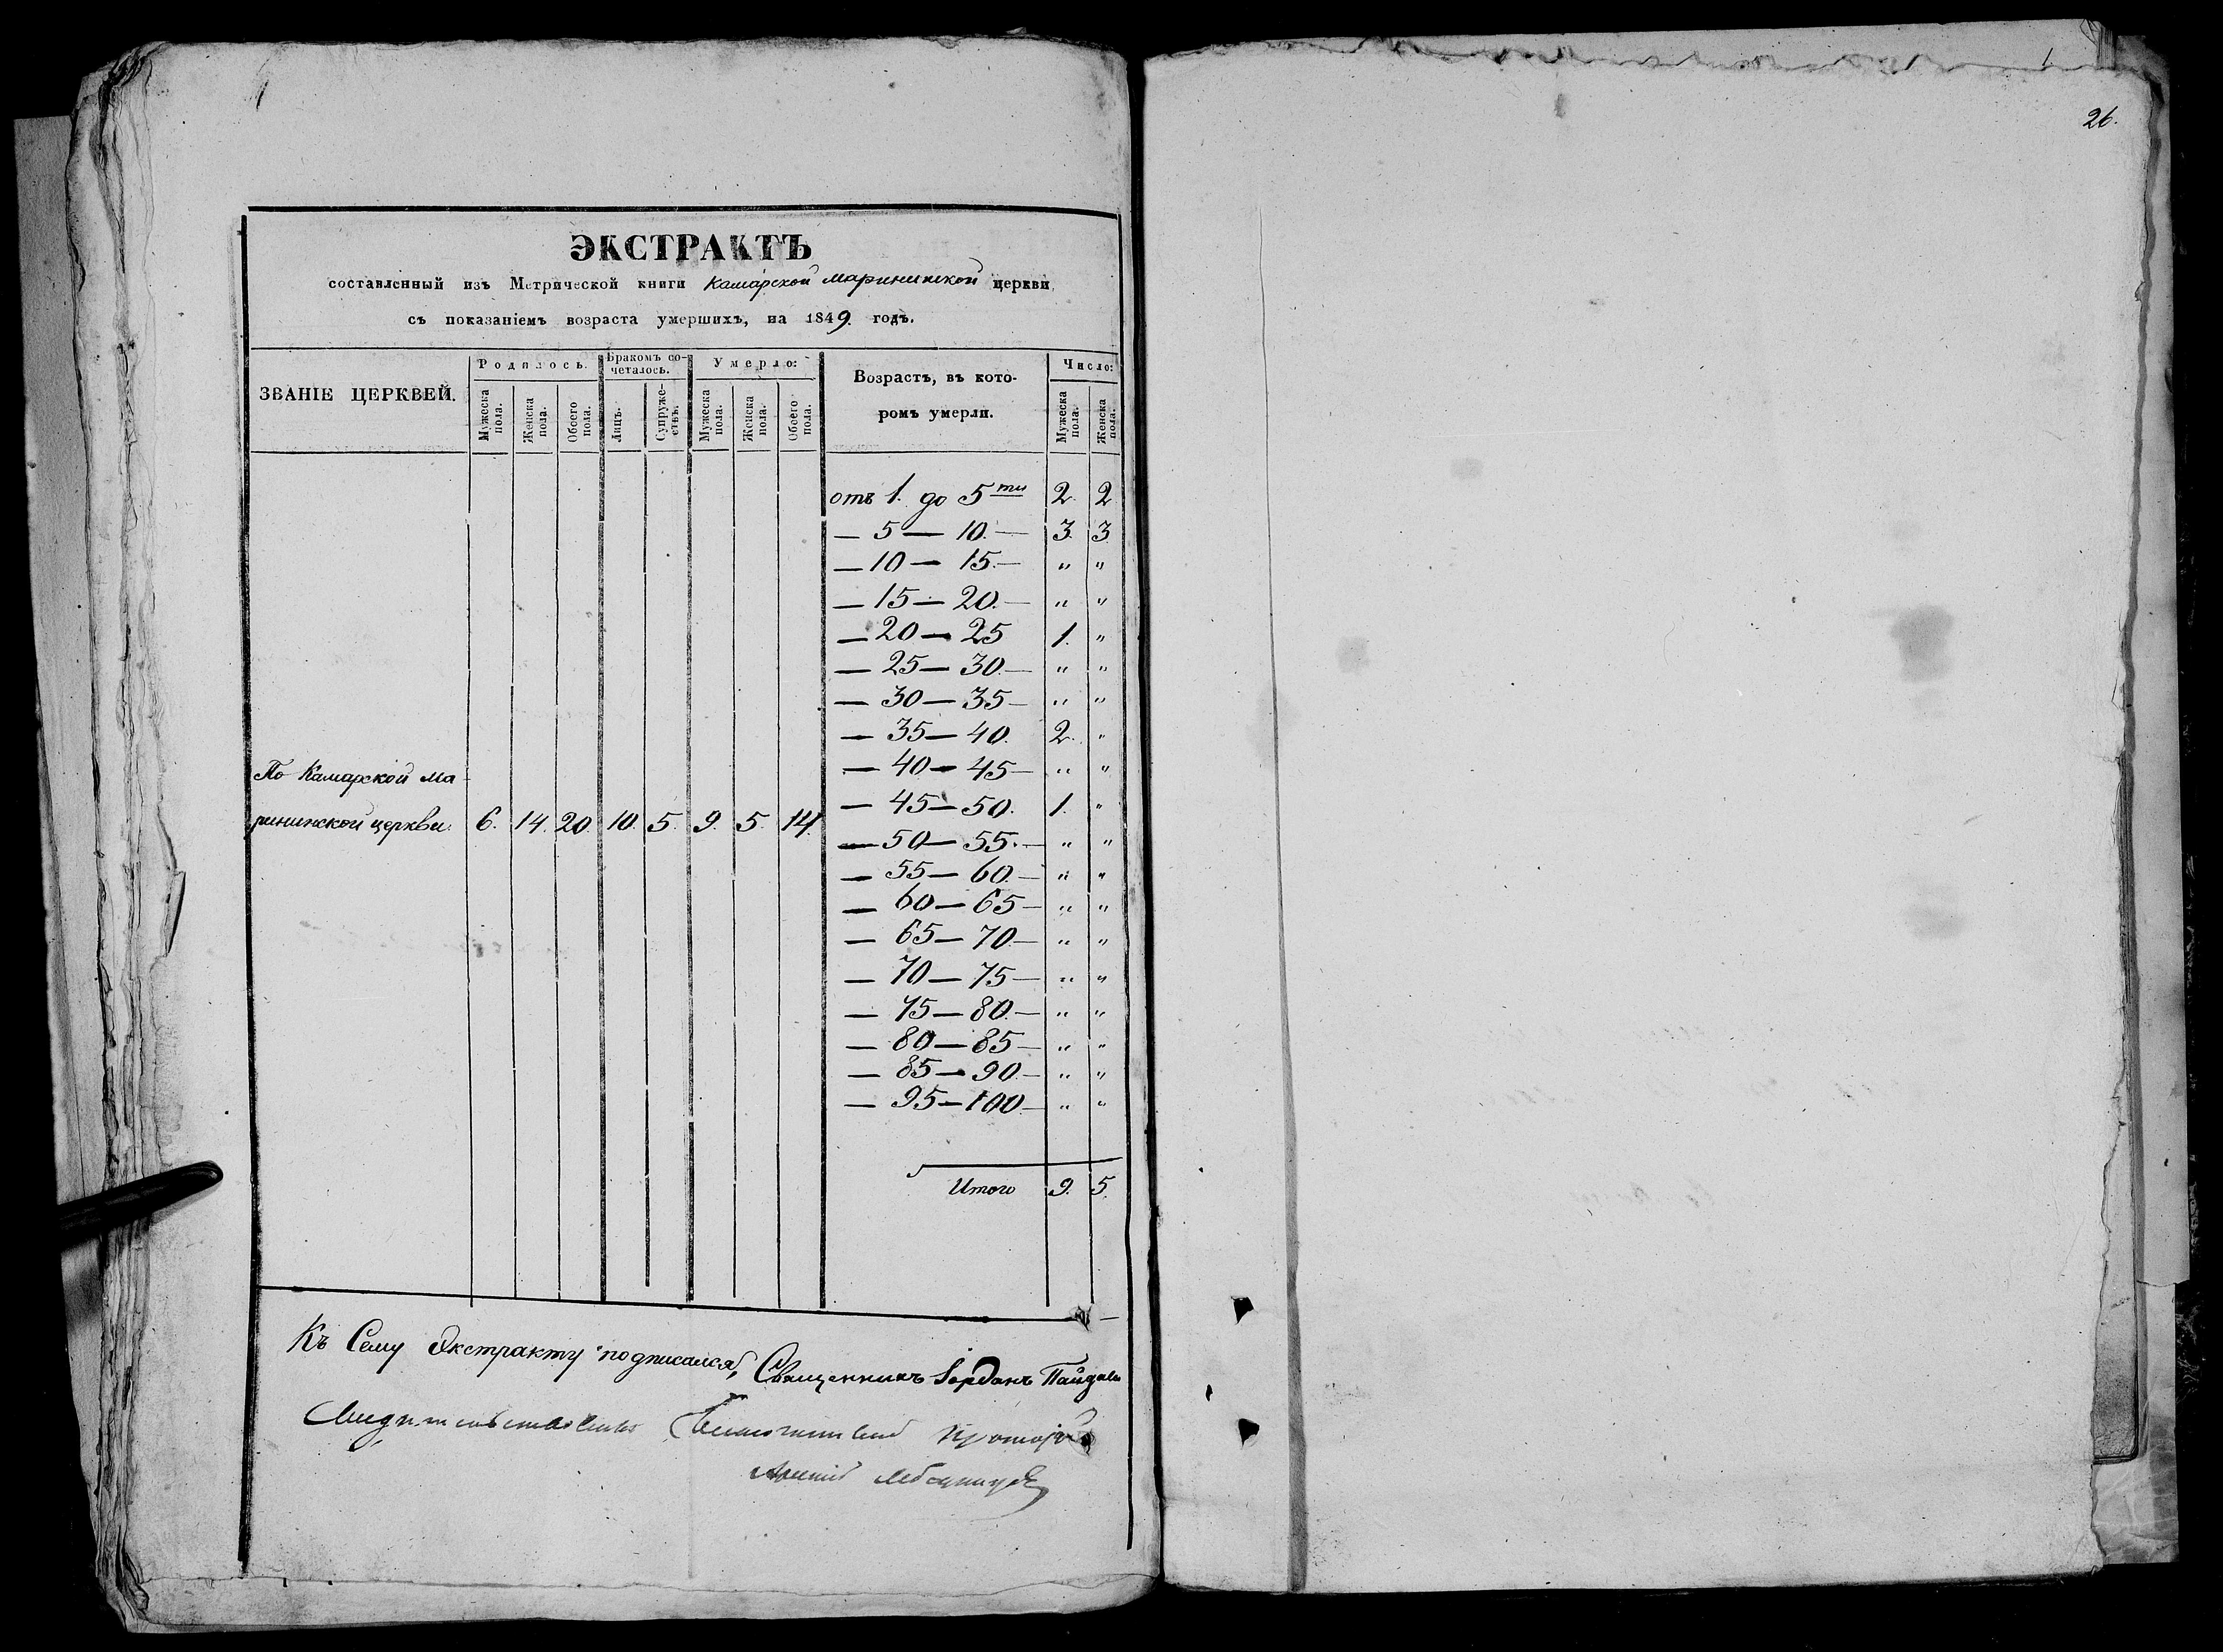 ЭКСТРАКТЪ
составленный изъ Метрической книги Камарской Марининской церкви
съ показаніемъ возраста умершихъ, на 1849. годъ.
ЗВАНІЕ ЦЕРКВЕЙ.
Родилось.
Бракомъ со-
четалось.
Умерло:
Возрастъ, въ кото-
ромъ умерли.
Число:
Мужеска пола.
Женска пола.
Обоего пола.
Лицъ.
Супруже-
ствъ.
Мужеска пола.
Женска пола.
Обоего пола.
Мужеска пола.
Женска пола.
отъ 1. до 5ти 2. 2
— 5 — 10. — 3. 3.
— 10 — 15. — " "
— 15 — 20. — " "
— 20 — 25 1. "
— 25 — 30. — " "
— 30 — 35 — " "
— 35 — 40. 2. "
— 40 — 45 — " "
— 45 — 50. 1. "
— 50 — 55. — " "
— 55 — 60. — " "
— 60 — 65 — " "
— 65 — 70. — " "
— 70 — 75 — " "
— 75 — 80. — " "
— 80 — 85 — " "
— 85 — 90. — " "
— 95 — 100. — " "
По Камарской Ма-
рининской церкви. 6. 14. 20. 10. 5. 9. 5. 14.
Итого 9. 5.
Къ Сему Экстракту подписался, Священникъ Іорданъ
26.